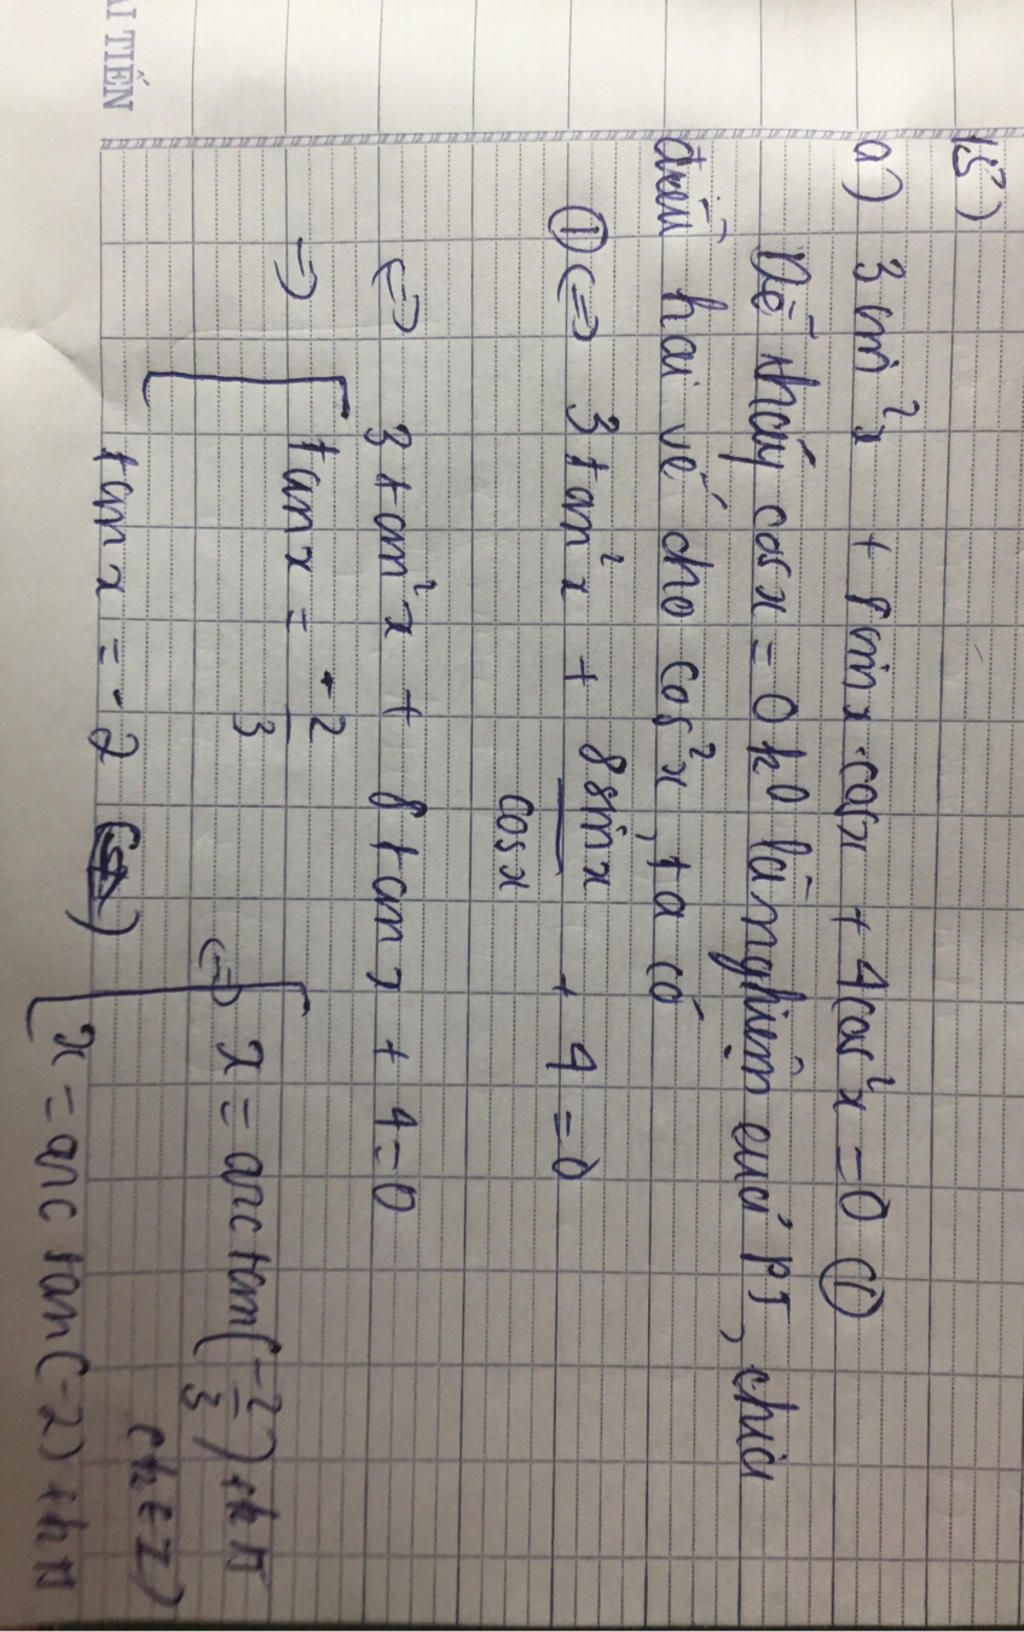 ẢI TIẾN
15)
a) 3 sin²x + 8 sin x · cos x + 4 cos²x = 0 ①
Dễ thấy cos x = 0 k⁰ là nghiệm của PT, chia
hai vế cho cos²x, ta có
① <=> 3 tan²x + 8 sin x / cos x + 4 = 0
<=> 3 tan²x + 8 tan x + 4 = 0
=> [ tan x = -2/3
tan x = -2
<=> [ x = arc tan(-2/3) + kπ
(k ∈ Z)
x = arc tan(-2) + kπ